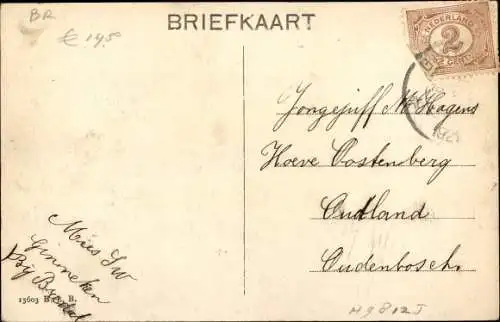 BR
€ 195
BRIEFKAART
NEDERLAND
2
CENT
Jongejuff M Hagens
Hoeve Oostenberg
Oudland
Oudenbosch.
Mies SW
Ginneken
Bij Breda
13603 B. R.
H9812J